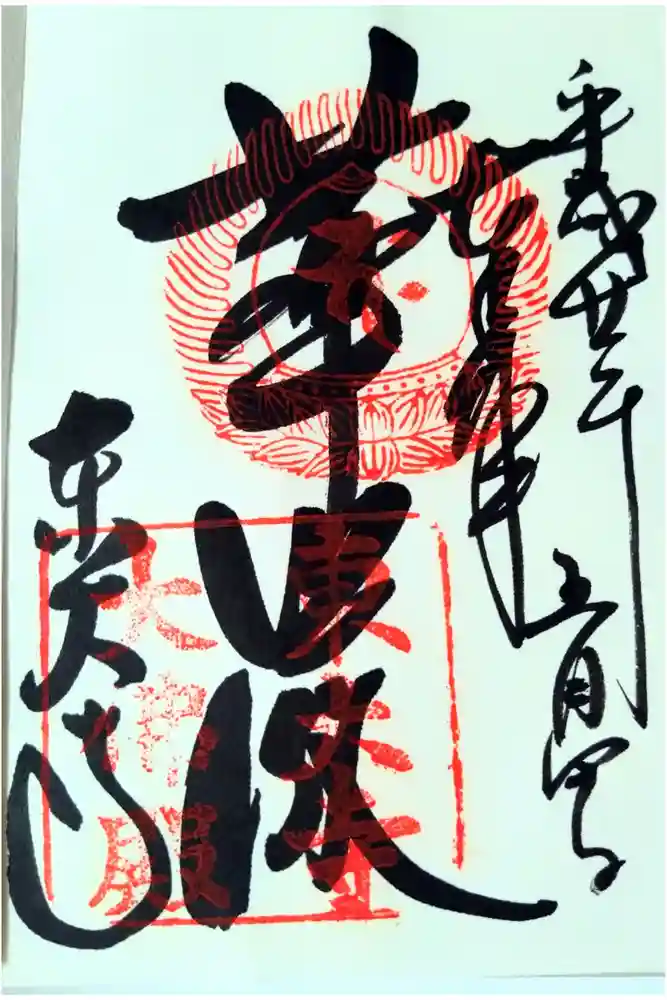 平成廿年五月四日
奉拝
華厳
東大寺
東大寺
大佛殿